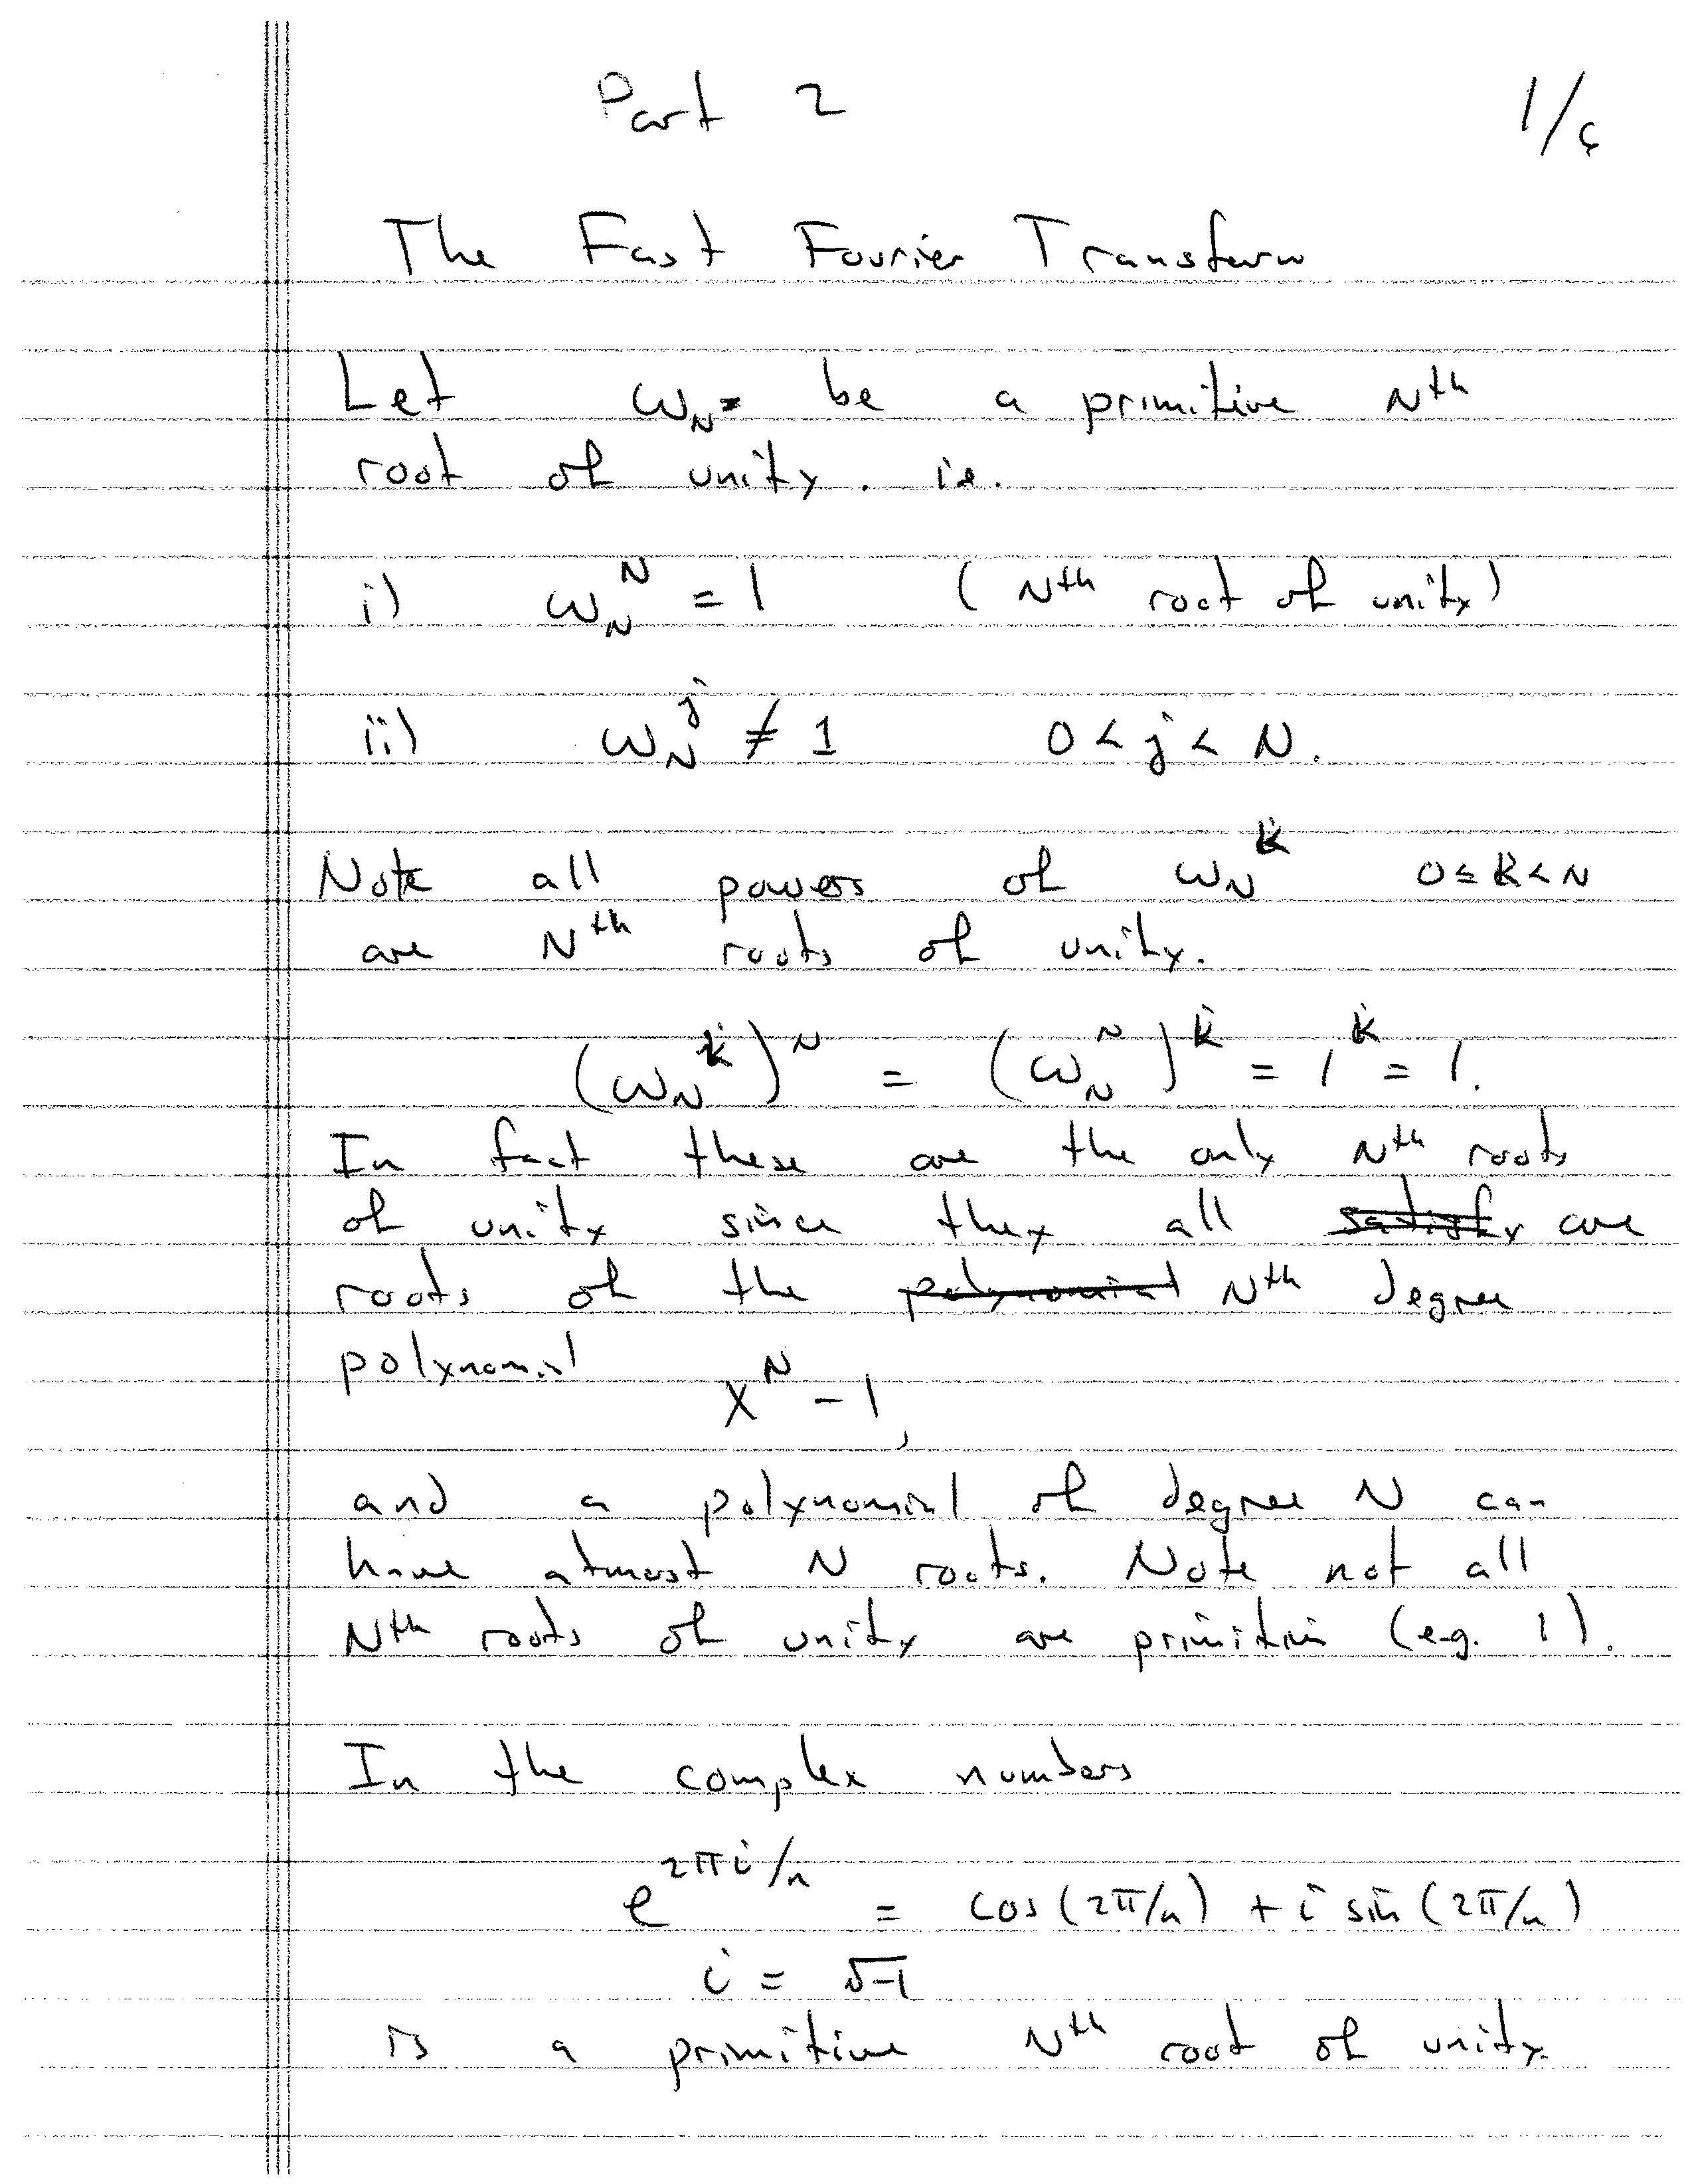 Part 2 1/6
The Fast Fourier Transform
Let ω_N be a primitive Nth
root of unity. ie.
i) ω_N^N = 1 (Nth root of unity)
ii) ω_N^j ≠ 1 0 < j < N.
Note all powers of ω_N^k 0 ≤ k < N
are Nth roots of unity.
(ω_N^k)^N = (ω_N^N)^k = 1^k = 1.
In fact these are the only Nth roots
of unity since they all satisfy are
roots of the polynomial Nth degree
polynomial
x^N - 1,
and a polynomial of degree N can
have atmost N roots. Note not all
Nth roots of unity are primitive (e.g. 1).
In the complex numbers
e^{2πi/n} = cos(2π/n) + i sin(2π/n)
i = √-1
is a primitive Nth root of unity.